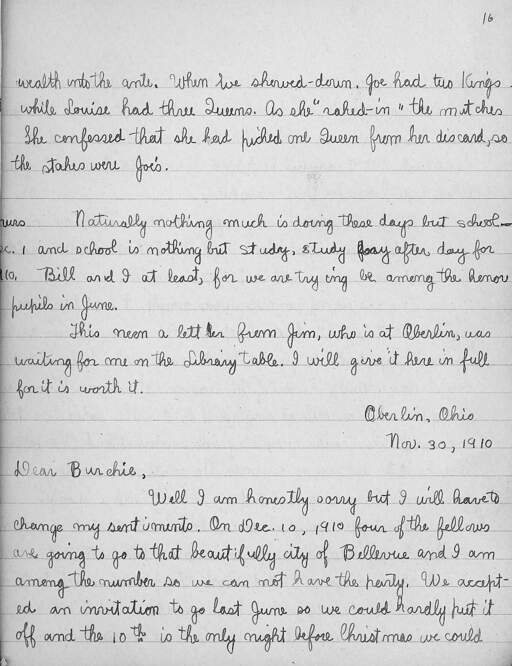 16
wealth into the ante. When we showed-down. Joe had two Kings
while Louise had three Queens. As she "raked-in" the matches
she confessed that she had picked one Queen from her discard, so
the stakes were Joe's.
Naturally nothing much is doing these days but school—
1 and school is nothing but study, study day after day for
Bill and I at least, for we are trying be among the honor
pupils in June.
This noon a letter from Jim, who is at Oberlin, was
waiting for me on the Library table. I will give it here in full
for it is worth it.
Oberlin, Ohio
Nov. 30, 1910
Dear Burchie,
Well I am honestly sorry but I will have to
change my sentiments. On Dec. 10, 1910 four of the fellows
are going to go to that beautifully city of Bellevue and I am
among the number so we can not have the party. We accept-
ed an invitation to go last June so we could hardly put it
off and the 10th is the only night before Christmas we could